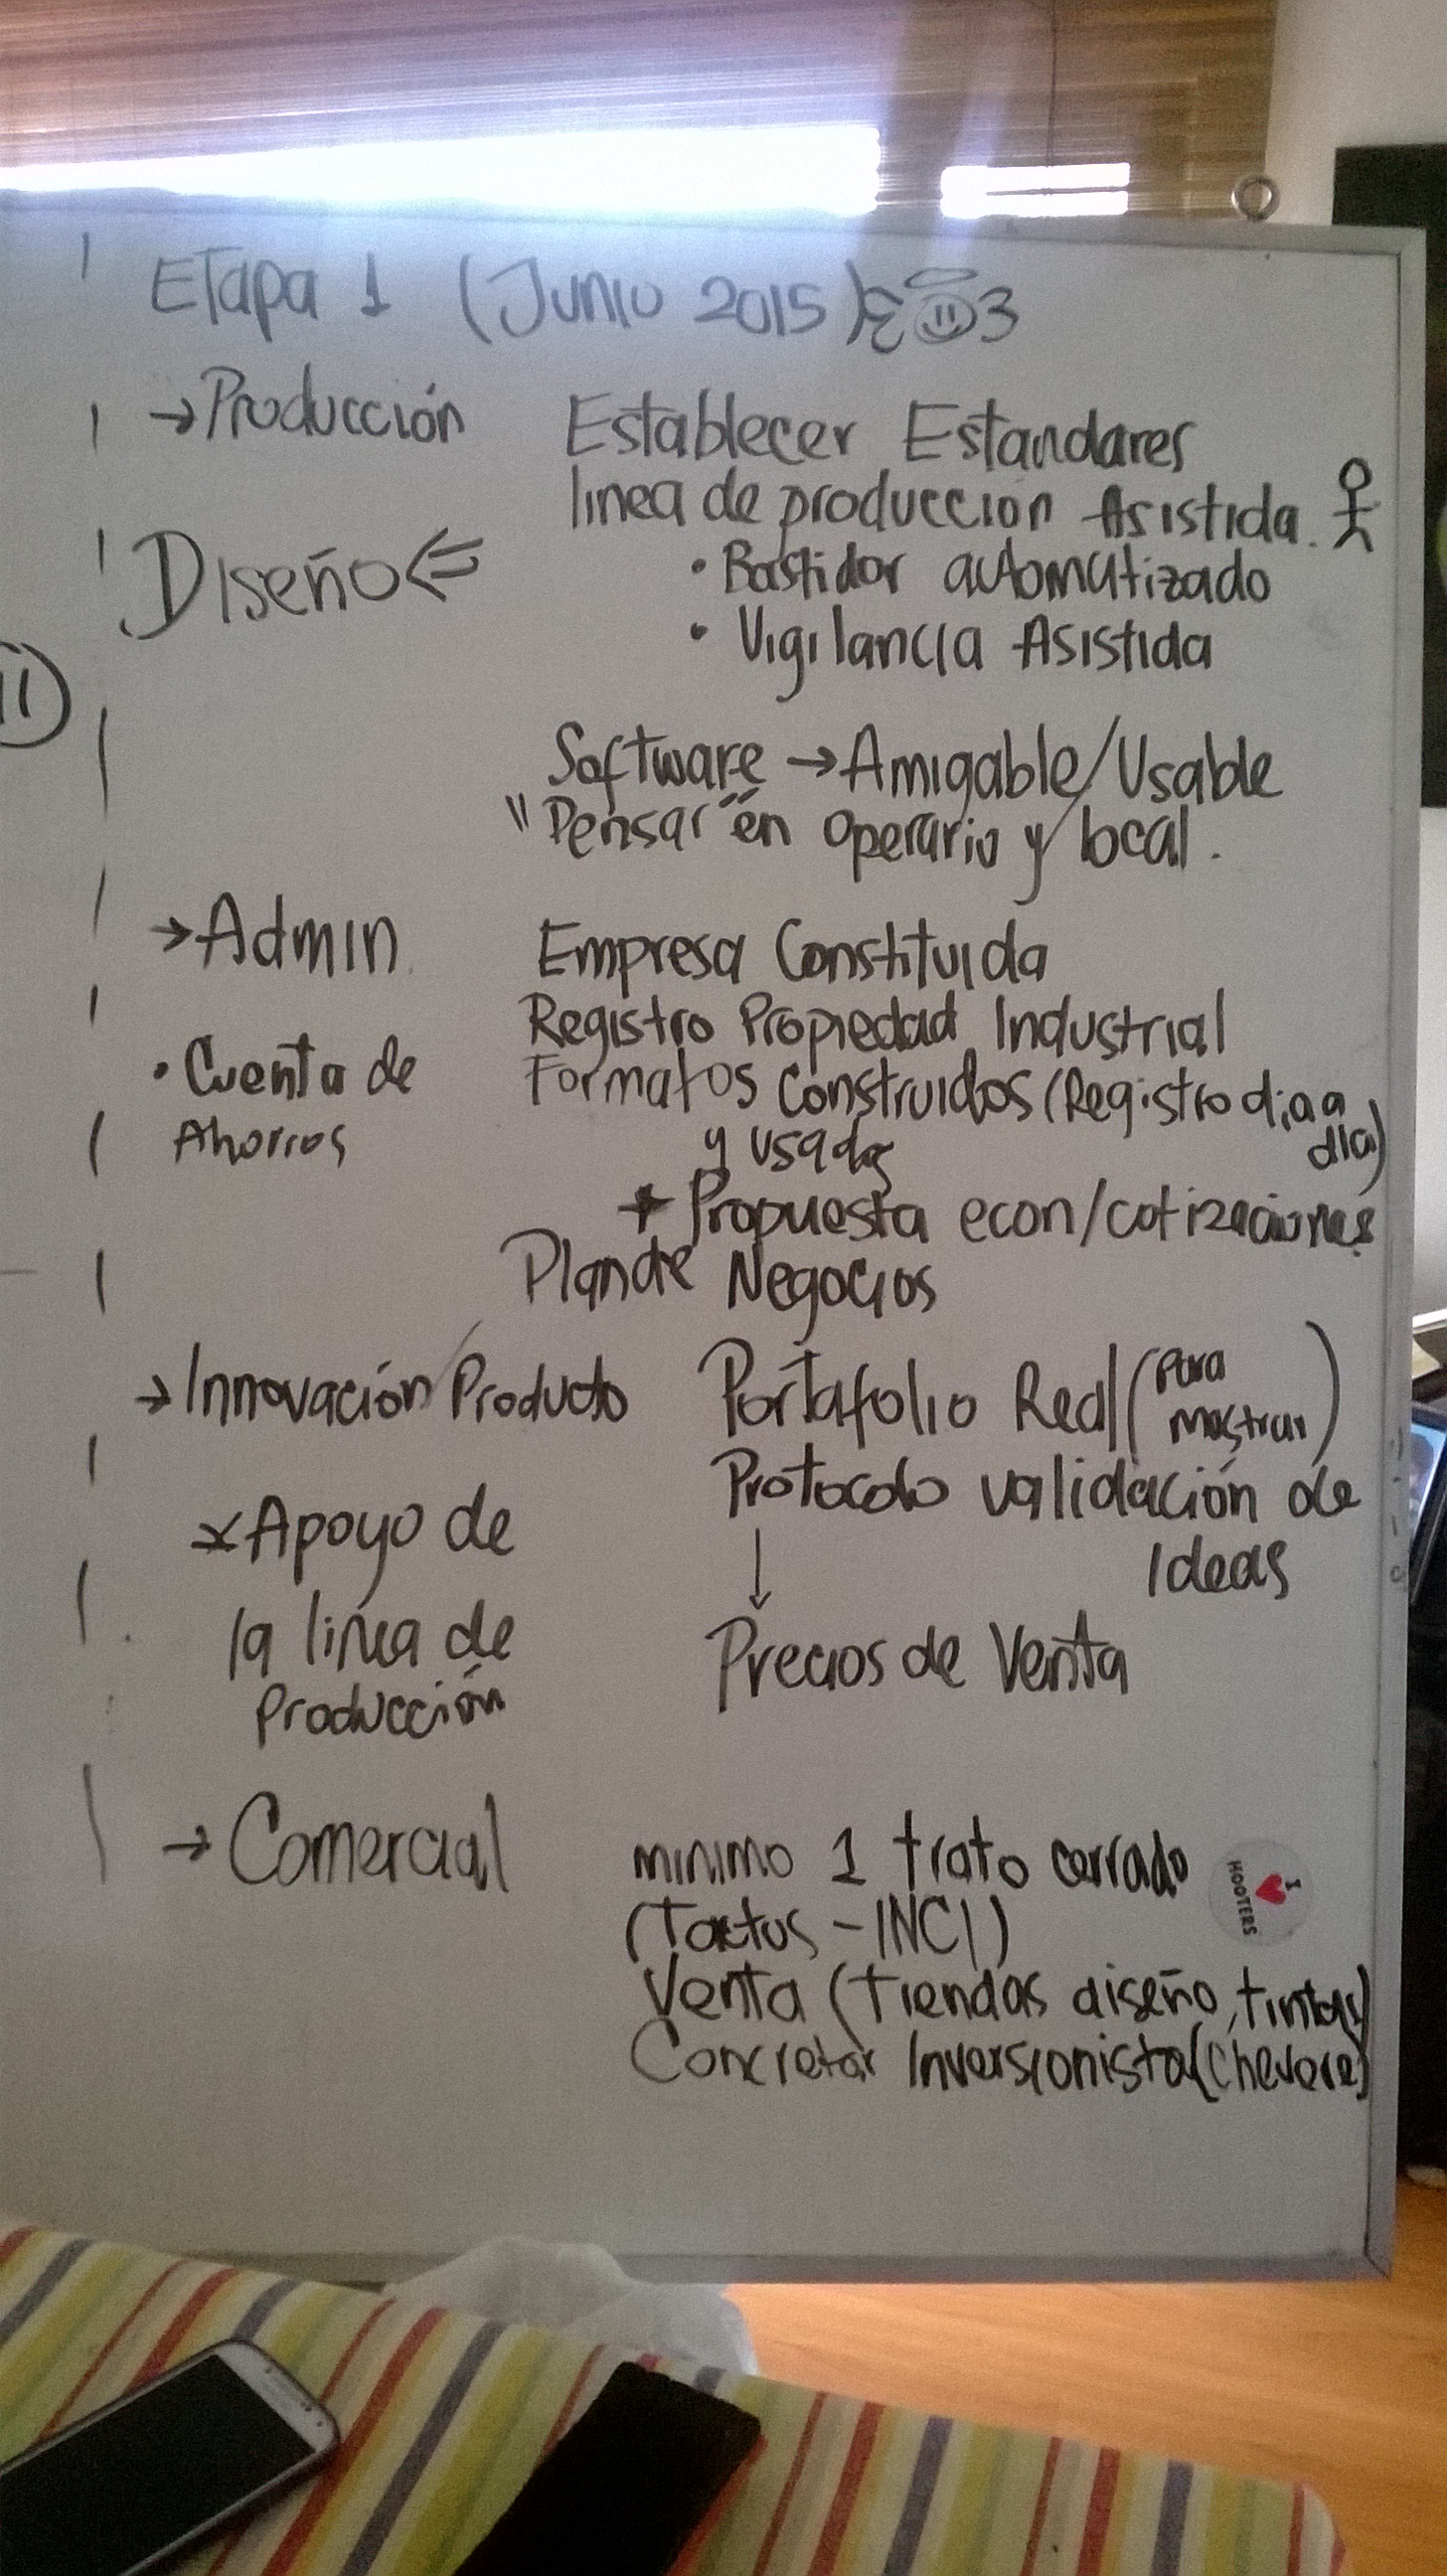 Etapa 1 (Junio 2015)
→Producción
Establecer Estandares
linea de producción Asistida.
• Bastidor automatizado
• Vigilancia Asistida
Diseño⇐
Software → Amigable/Usable
"Pensar" en operario y local.
→Admin.
Empresa Constituida
Registro Propiedad Industrial
Formatos Construidos (Registro dia a dia)
y usados
+ Propuesta econ/cotizaciones
Plan de Negocios
• Cuenta de
Ahorros
→Innovación/Producto
Portafolio Real (para mostrar)
Protocolo validación de
Ideas
↓
Precios de Venta
*Apoyo de
la linea de
Producción
→ Comercial
minimo 1 trato cerrado
(Tactus - INCI)
Venta (Tiendas diseño, tintas)
Concretar Inversionista (chevere)
I ♥
HOOTERS